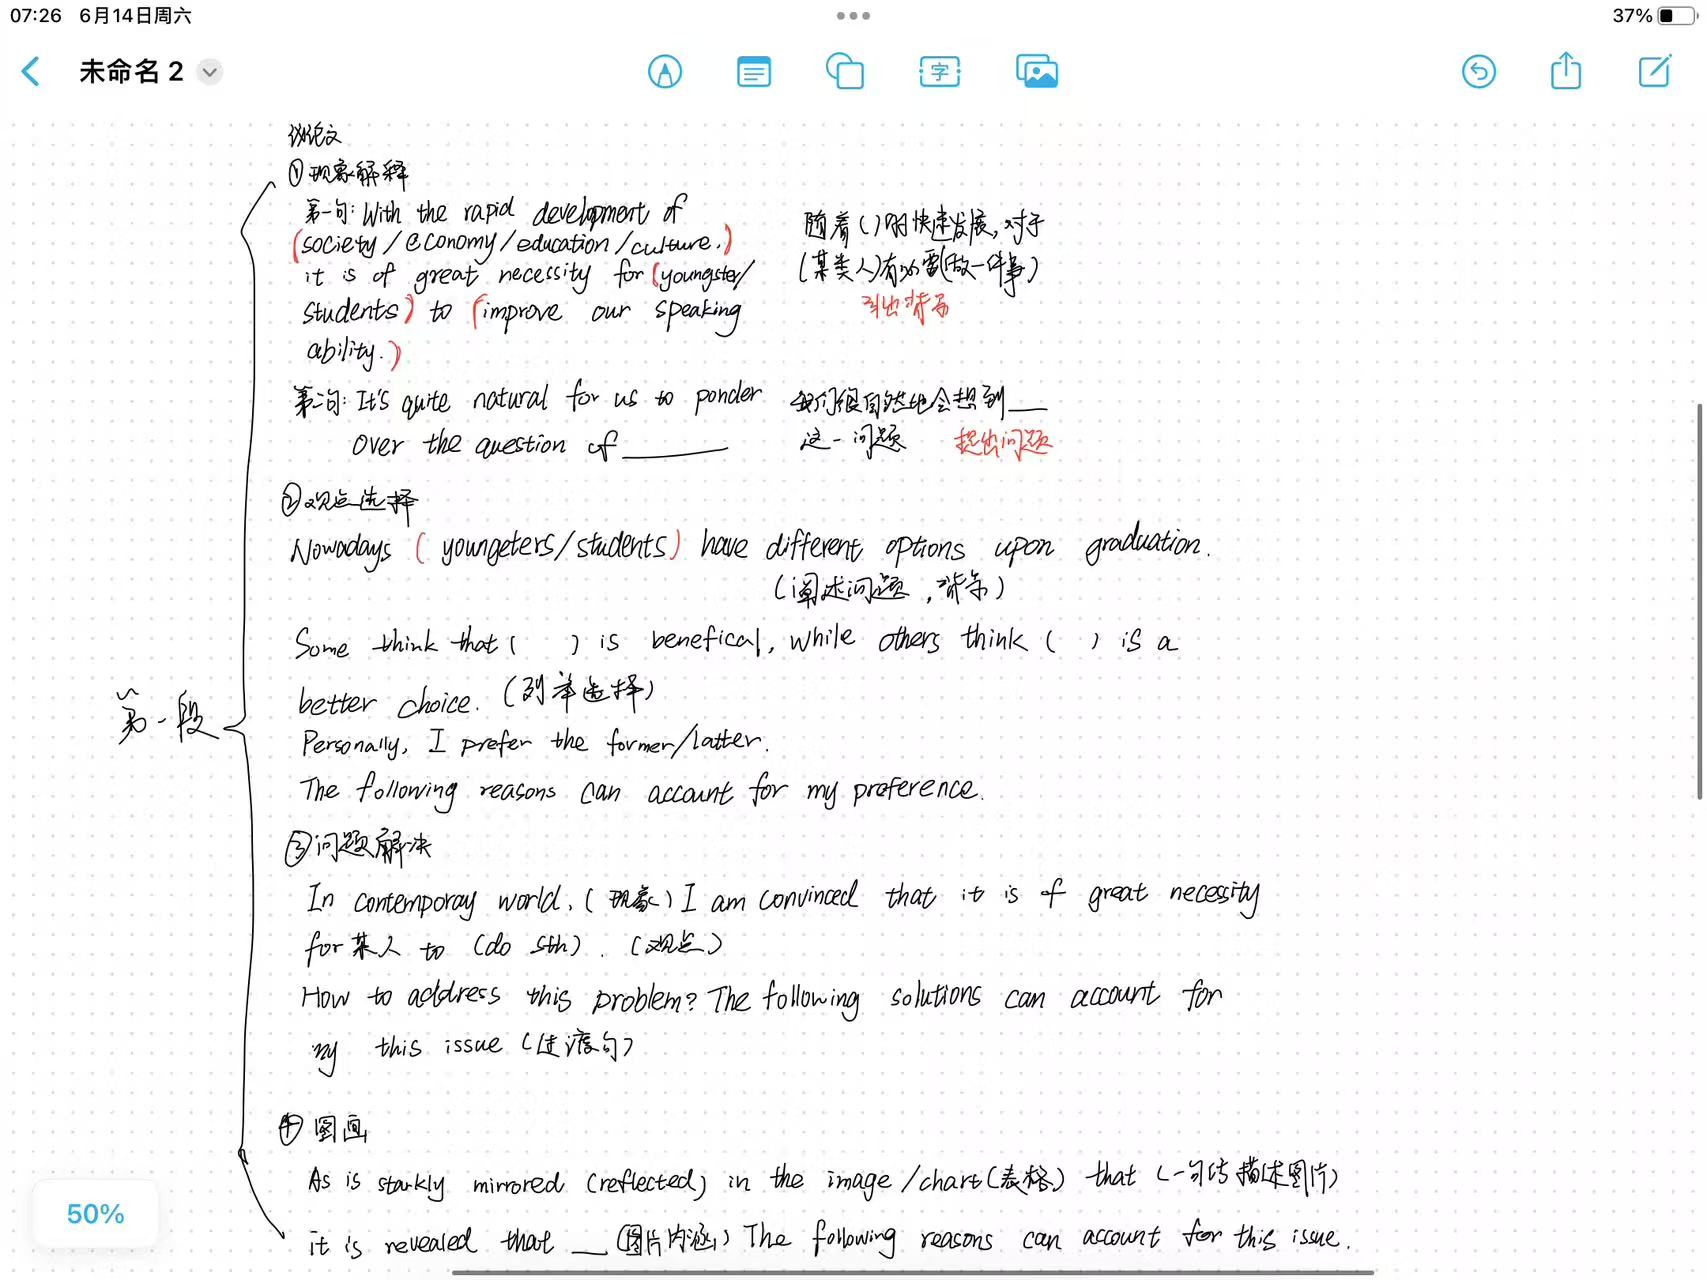 07:26 6月14日周六
37%
未命名 2
字
议论文
①现象解释
第一句: With the rapid development of
(society/economy/education/culture.)
it is of great necessity for (youngster/
students) to (improve our speaking
ability.)
随着( )的快速发展,对于
(某类人)有必要(做一件事)
引出背景
第二句: It's quite natural for us to ponder
over the question of ______
我们很自然地会想到___
这一问题 提出问题
②观点选择
Nowadays (youngeters/students) have different options upon graduation.
(阐述问题,背景)
Some think that ( ) is benefical, while others think ( ) is a
better choice. (列举选择)
Personally, I prefer the former/latter.
The following reasons can account for my preference.
第一段
③问题解决
In contemporay world, (现象) I am convinced that it is of great necessity
for 某人 to (do sth). (观点)
How to address this problem? The following solutions can account for
my this issue (过渡句)
④图画
As is starkly mirrored (reflected) in the image/chart(表格) that (一句话描述图片)
it is revealed that __ (图片内涵) The following reasons can account for this issue.
50%